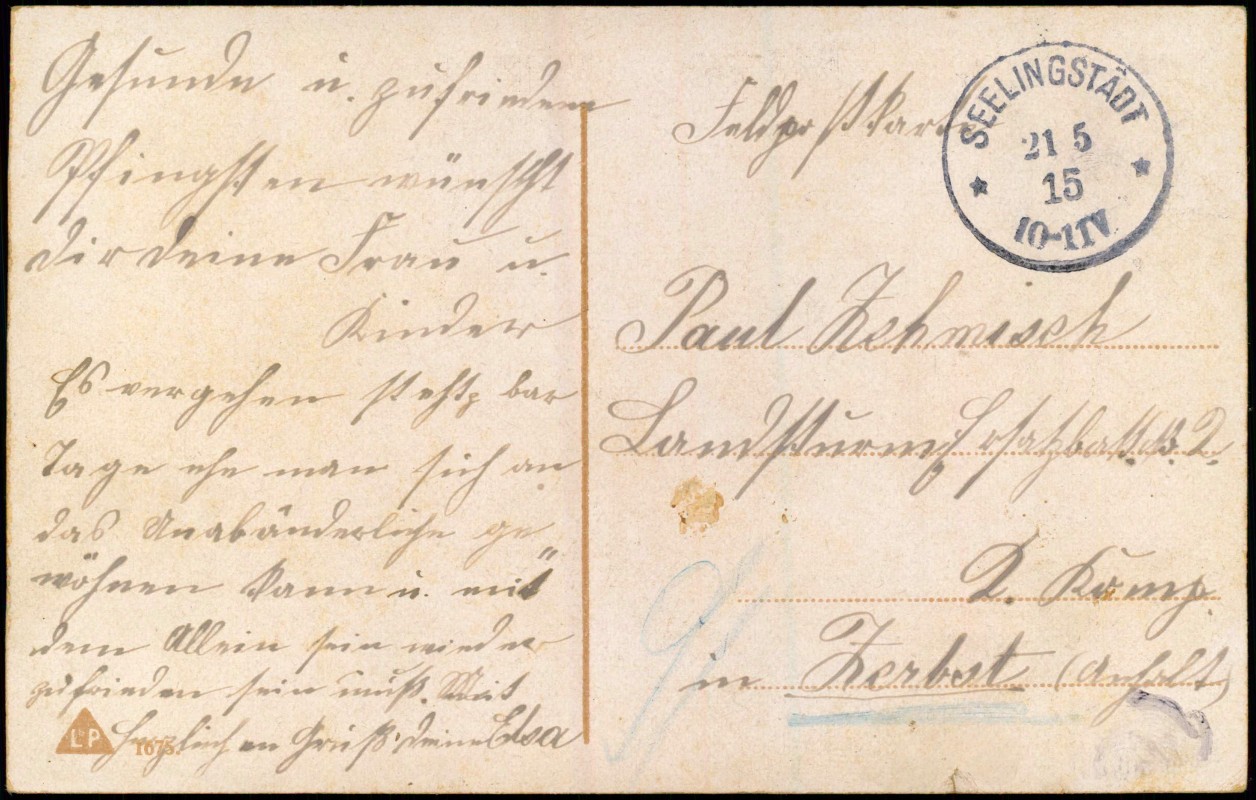 Gesunde u. zufrieden
Pfingsten wünscht
dir deine Frau u.
Kinder
Es vergehen stehtz bar
Tage ehe man sich an
das Unabänderliche ge
wöhnen kann u. mit
dem Allein sein wieder
zufrieden sein muß. Mit
herzlichen Gruß deine Elsa
LP 1673.
Feldpostkarte
SEELINGSTÄDT
21 5
15
10-11V
Paul Zehmisch
Landsturm Ersatzbatt. 2.
2. Komp.
in Zerbst (Anhalt)